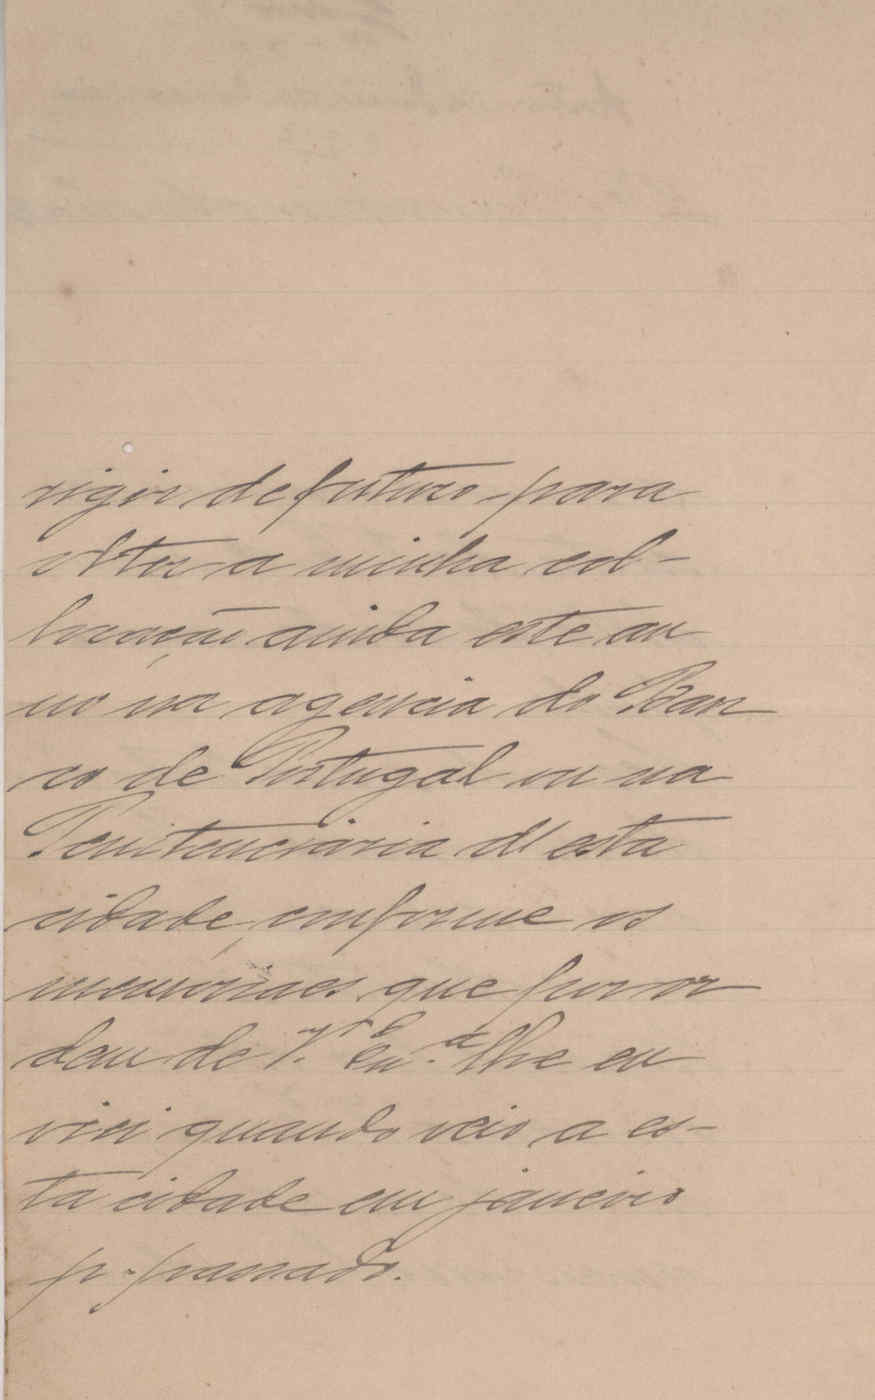 rigir de futuro para
obter a minha col-
locação ainda este an
no na agencia do Ban
co de Portugal ou na
Penitenciaria d'esta
cidade, conforme os
memoriaes que por or
dem de V. Ex.ª lhe en
viei quando veio a es-
ta cidade em janeiro
p. passado.